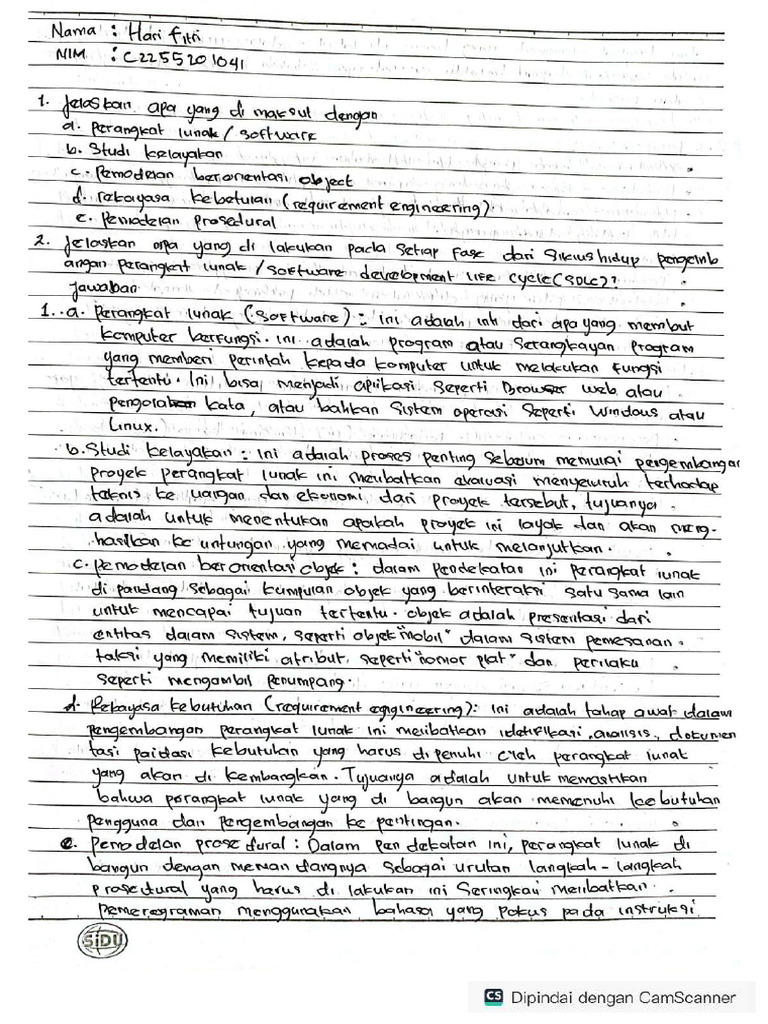 Nama : Hari Fitri
NIM : C2255201041
1. Jelaskan apa yang di maksut dengan
a. Perangkat lunak / software
b. Studi kelayakan
c. Pemodelan berorientasi object
d. rekayasa kebetulan (requirement engineering)
e. Pemodelan Prosedural
2. Jelaskan apa yang di lakukan pada setiap fase dari siklus hidup pengemb
angan perangkat lunak / software development life cycle (SDLC)?
Jawaban
1. a. Perangkat lunak (software) : Ini adalah inti dari apa yang membut
komputer berfungsi. ini adalah program atau serangkayan program
yang memberi perintah kepada komputer untuk melakukan fungsi
tertentu. Ini bisa menjadi aplikasi seperti Browser web atau
pengolahan kata, atau bahkan sistem operasi seperti windows atau
Linux.
b. Studi kelayakan : Ini adalah proses penting sebelum memulai pengembangan
proyek perangkat lunak ini melibatkan evaluasi menyeluruh terhadap
teknis ke uangan dan ekonomi dari proyek tersebut, tujuanya
adalah untuk menentukan apakah proyek ini layak dan akan meng-
hasilkan ke untungan yang memadai untuk melanjutkan.
c. Pemodelan berorientasi objek : dalam pendekatan ini perangkat lunak
di pandang sebagai kumpulan objek yang berinteraksi satu sama lain
untuk mencapai tujuan tertentu. objek adalah presentasi dari
entitas dalam sistem, seperti objek "mobil" dalam sistem pemesanan
taksi yang memiliki atribut, seperti "nomor plat" dan perilaku
seperti mengambil penumpang.
d. Rekayasa kebutuhan (requirement enggineering) : ini adalah tahap awal dalam
pengembangan perangkat lunak ini melibatkan idetifikasi, analisis, dokumen
tasi paidasi kebutuhan yang harus di penuhi oleh perangkat lunak
yang akan di kembangkan. Tujuanya adalah untuk memastikan
bahwa perangkat lunak yang di bangun akan memenuhi kebutuhan
pengguna dan pengembangan ke pentingan.
e. Pemodelan prosedural : Dalam pendekatan ini, perangkat lunak di
bangun dengan memandangnya sebagai urutan langkah - langkah
prosedural yang harus di lakukan ini seringkali melibatkan
pemerograman menggunakan bahasa yang pokus pada instruksi
SiDU
CS Dipindai dengan CamScanner